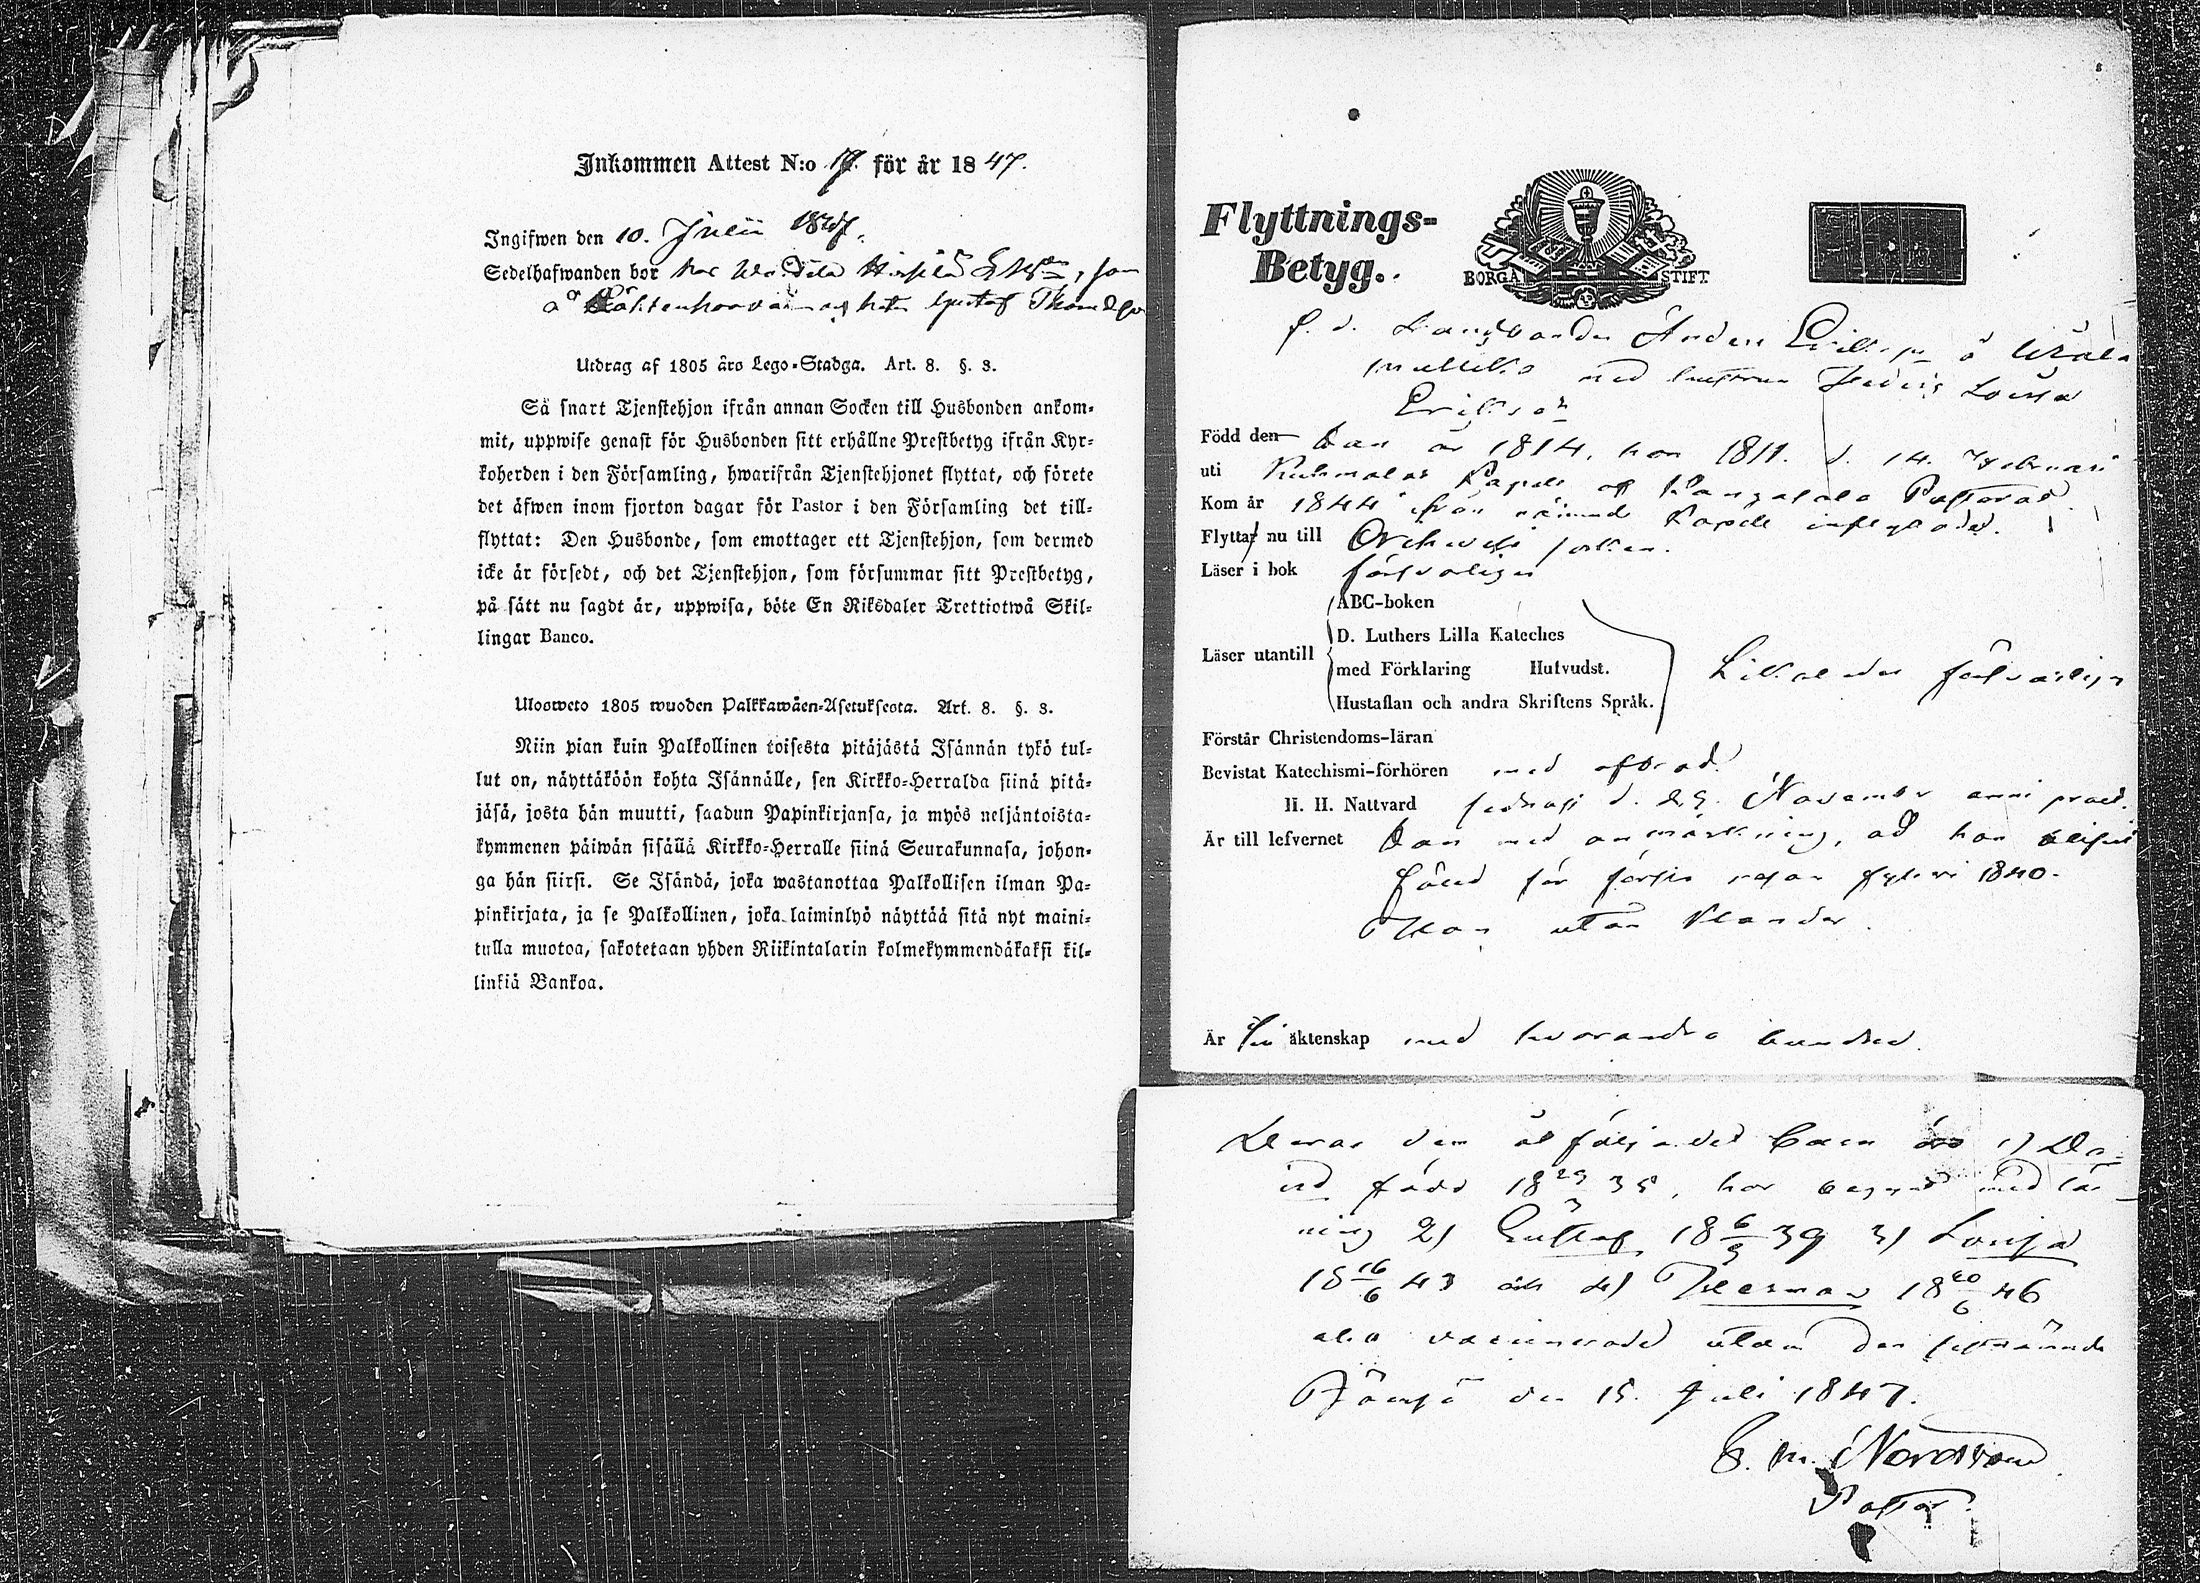 Inkommen Attest N:o 17. för år 1847.
Ingifwen den 10. Julii 1847.
Sedelhafwanden bor hos, som
å och heter Gustaf
Utdrag af 1805 års Lego-Stadga. Art. 8. §. 3.
Så snart Tjenstehjon ifrån annan Socken till Husbonden ankom-
mit, uppwise genast för Husbonden sitt erhållne Prestbetyg ifrån Kyr-
koherden i den Församling, hwarifrån Tjenstehjonet flyttat, och förete
det äfwen inom fjorton dagar för Pastor i den Församling det till-
flyttat: Den Husbonde, som emottager ett Tjenstehjon, som dermed
icke är försedt, och det Tjenstehjon, som försummar sitt Prestbetyg,
på sätt nu sagdt är, uppwisa, böte En Riksdaler Trettiotwå Skil-
lingar Banco.
Ulosweto 1805 wuoden Palkkawäen-Asetuksesta. Art. 8. §. 3.
Niin pian kuin Palkollinen toisesta pitäjästä Isännän tykö tul-
lut on, näyttäköön kohta Isännälle, sen Kirkko-Herralda siinä pitä-
jäsä, josta hän muutti, saadun Papinkirjansa, ja myös neljäntoista-
kymmenen päiwän sisällä Kirkko-Herralle siinä Seurakunnasa, johon-
ga hän siirsi. Se Isändä, joka wastanottaa Palkollisen ilman Pa-
pinkirjata, ja se Palkollinen, joka laiminlyö näyttää sitä nyt maini-
tulla muotoa, sakotetaan yhden Riikintalarin kolmekymmendäkaksi kil-
linkiä Bankoa.
Flyttnings-
Betyg.
BORGÅ STIFT
f. d. Landbonden Anders Eriksson å
med hustrun Hedvig Lovisa
Född den han år 1814, hon 1811. d. 14. Februari
uti Kuhmalax Kapell af Kangasala Pastorat
Kom år 1844 ifrån nämnde Kapell inflyttade.
Flyttar nu till Orihvesi socken.
Läser i bok försvarligen
ABC-boken
D. Luthers Lilla Kateches
Läser utantill
med Förklaring Hufvudst.
Likaledes försvarligen
Hustaflan och andra Skriftens Språk.
Förstår Christendoms-läran
Bevistat Katechismi-förhören med
H. H. Nattvard sednast d. 29. November anni praet.
Är till lefvernet han med anmärkning, att han blifvit
fäld för första resan fylleri 1840.
Hon utan klander.
Är i äktenskap med hvarandra
Deras dem åtföljande barn äro 1) Da-
vid född 18 29/3 35, har begynt med läs-
ning 2) Gustaf 18 6/9 39 3) Lovisa
18 16/6 43 och 4) Herman 18 20/6 46
alla vaccinerade utom den sistnämnde
Jämsä den 15. Juli 1847.
Nordström
Pastor.